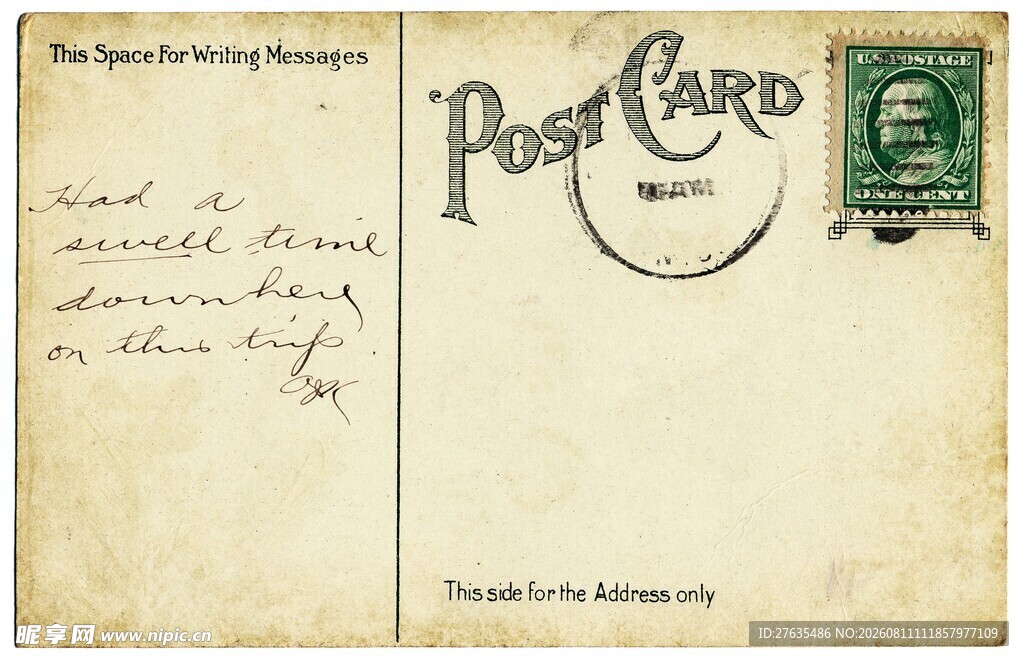 This Space For Writing Messages
POST CARD
U.S. POSTAGE
ONE CENT
Had a
swell time
down here
on this trip.
This side for the Address only
昵享网 www.nipic.cn
ID:27635486 NO:20260811111857977109